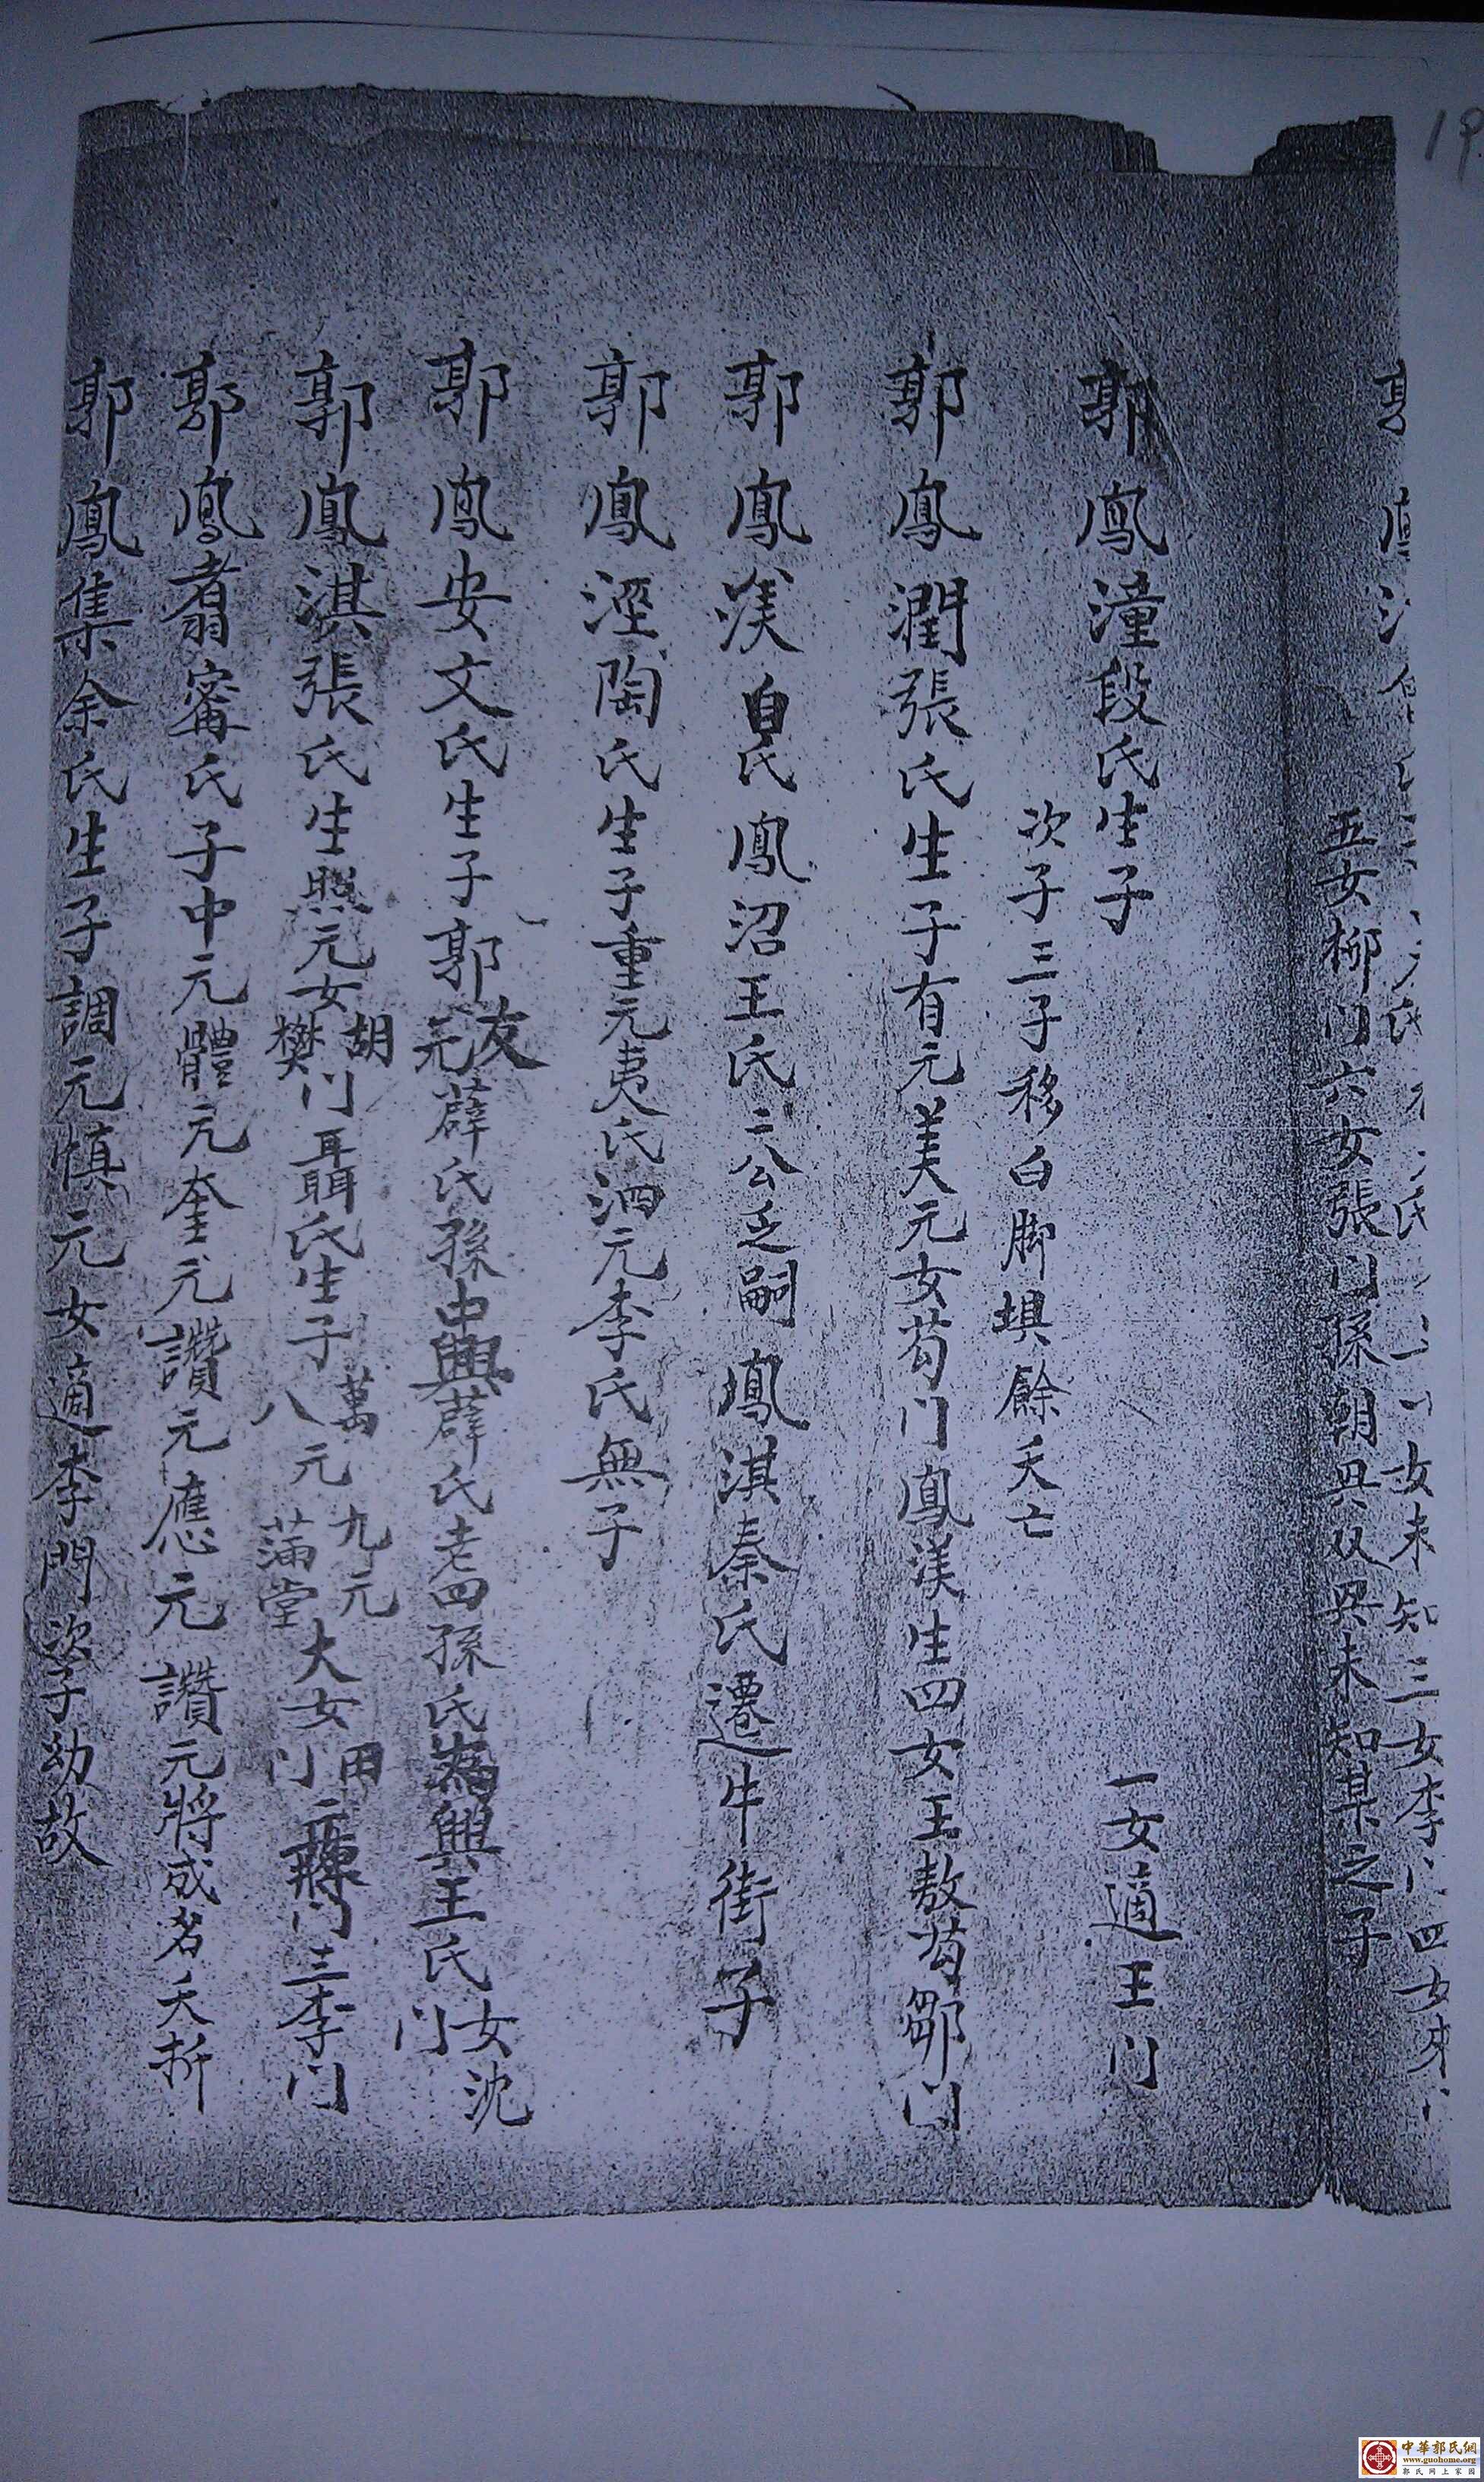 19
女未知三女李门四女宋门
五女柳门六女張门孫朝興双興未知某之子
郭鳳潼段氏生子 一女適王门
次子三子移白脚埧餘夭亡
郭鳳潤張氏生子有元美元女苟门鳳渼生四女王敖苟鄒门
郭鳳渼自氏鳳沼王氏二公乏嗣鳳淇秦氏遷牛街子
郭鳳涇陶氏生子重元夷氏泗元李氏無子
郭鳳安文氏生子郭友元薛氏孫中興薛氏老四孫氏為興王氏女沈门
郭鳳淇張氏生照元女胡樊门聶氏生子萬八元九元滿堂大女田门二蘇门三李门
郭鳳翥甯氏子中元體元奎元讚元應元讚元將成名夭折
郭鳳集余氏生子調元慎元女適李門次子幼故
中華郭氏網
www.guohome.org
郭氏网上家园